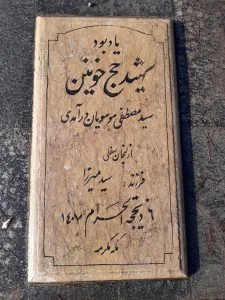 یادبود
شهید حج خونین
سید مصطفی موسویان درآمدی
از لنجان سفلی
فرزند: سید میرزا
۶ ذیحجه الحرام ۱۴۰۷
مکه مکرمه